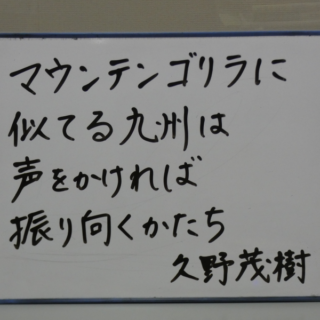 マウンテンゴリラに
似てる九州は
声をかければ
振り向くかたち
久野茂樹